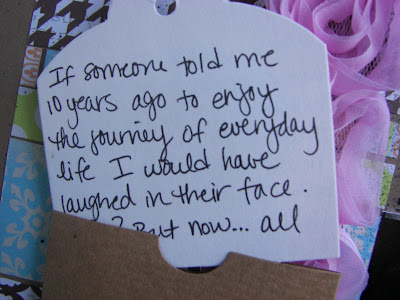 If someone told me
10 years ago to enjoy
the journey of everyday
life I would have
laughed in their face.
? But now... all